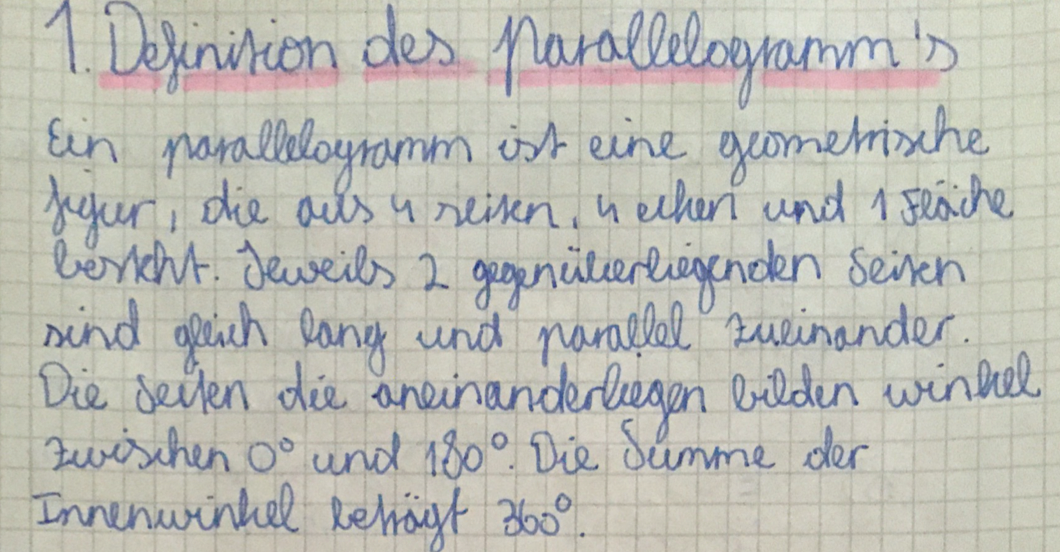 1. Definition des Parallelogramm's
Ein parallelogramm ist eine geometrische
figur, die aus 4 seiten, 4 ecken und 1 Fläche
besteht. Jeweils 2 gegenüberliegenden Seiten
sind gleich lang und parallel zueinander.
Die Seiten die aneinanderliegen bilden winkel
zwischen 0° und 180°. Die Summe der
Innenwinkel beträgt 360°.